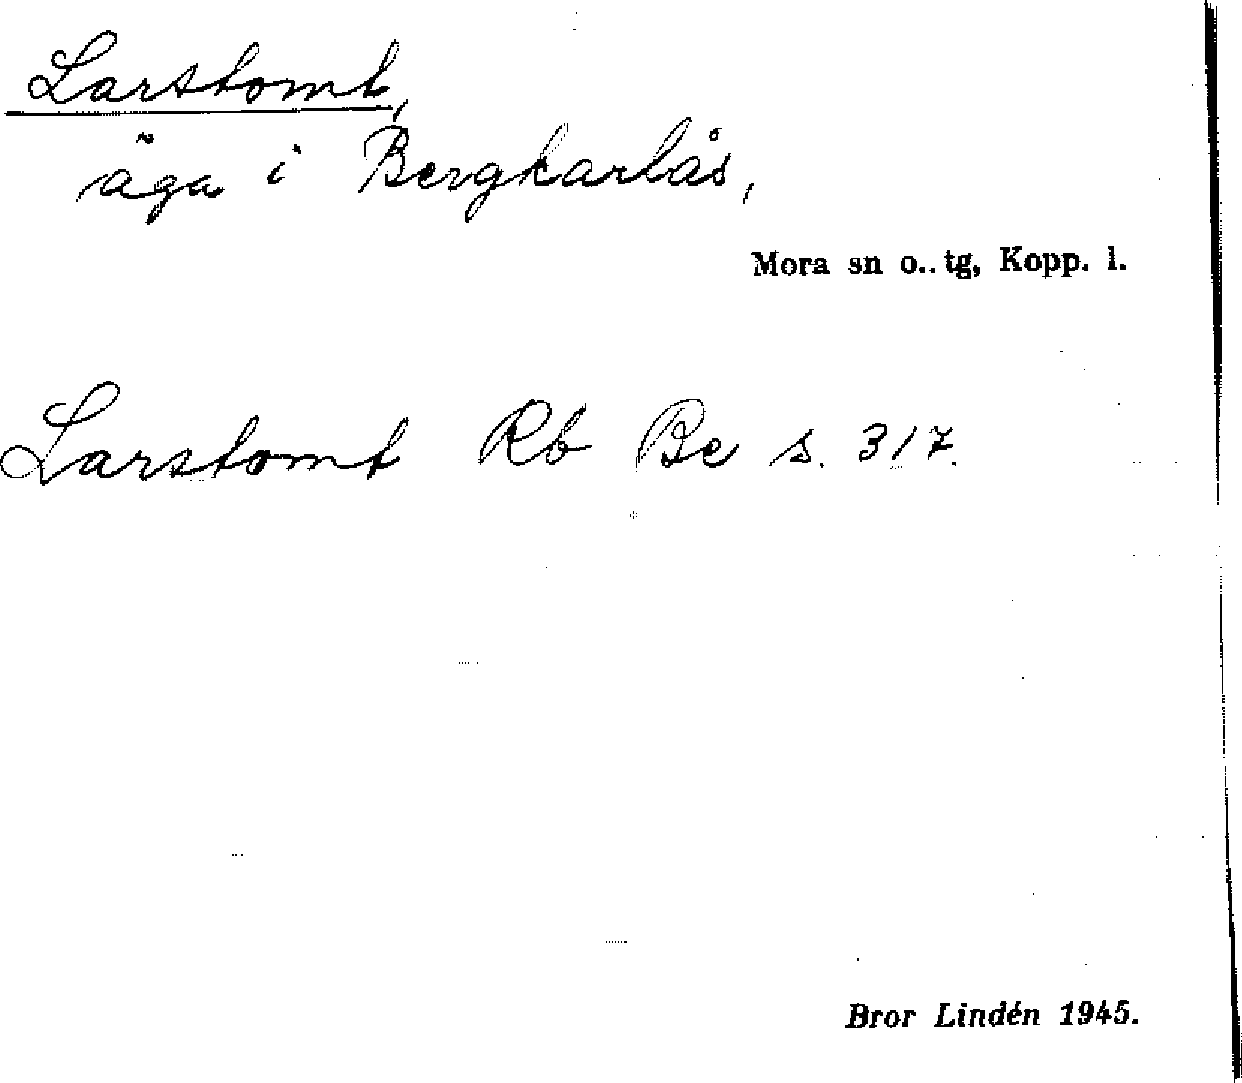 Larstomt,
äga i Bergkarlås,
Mora sn o. tg, Kopp. l.
Larstomt Rb Be s. 317.
Bror Lindén 1945.